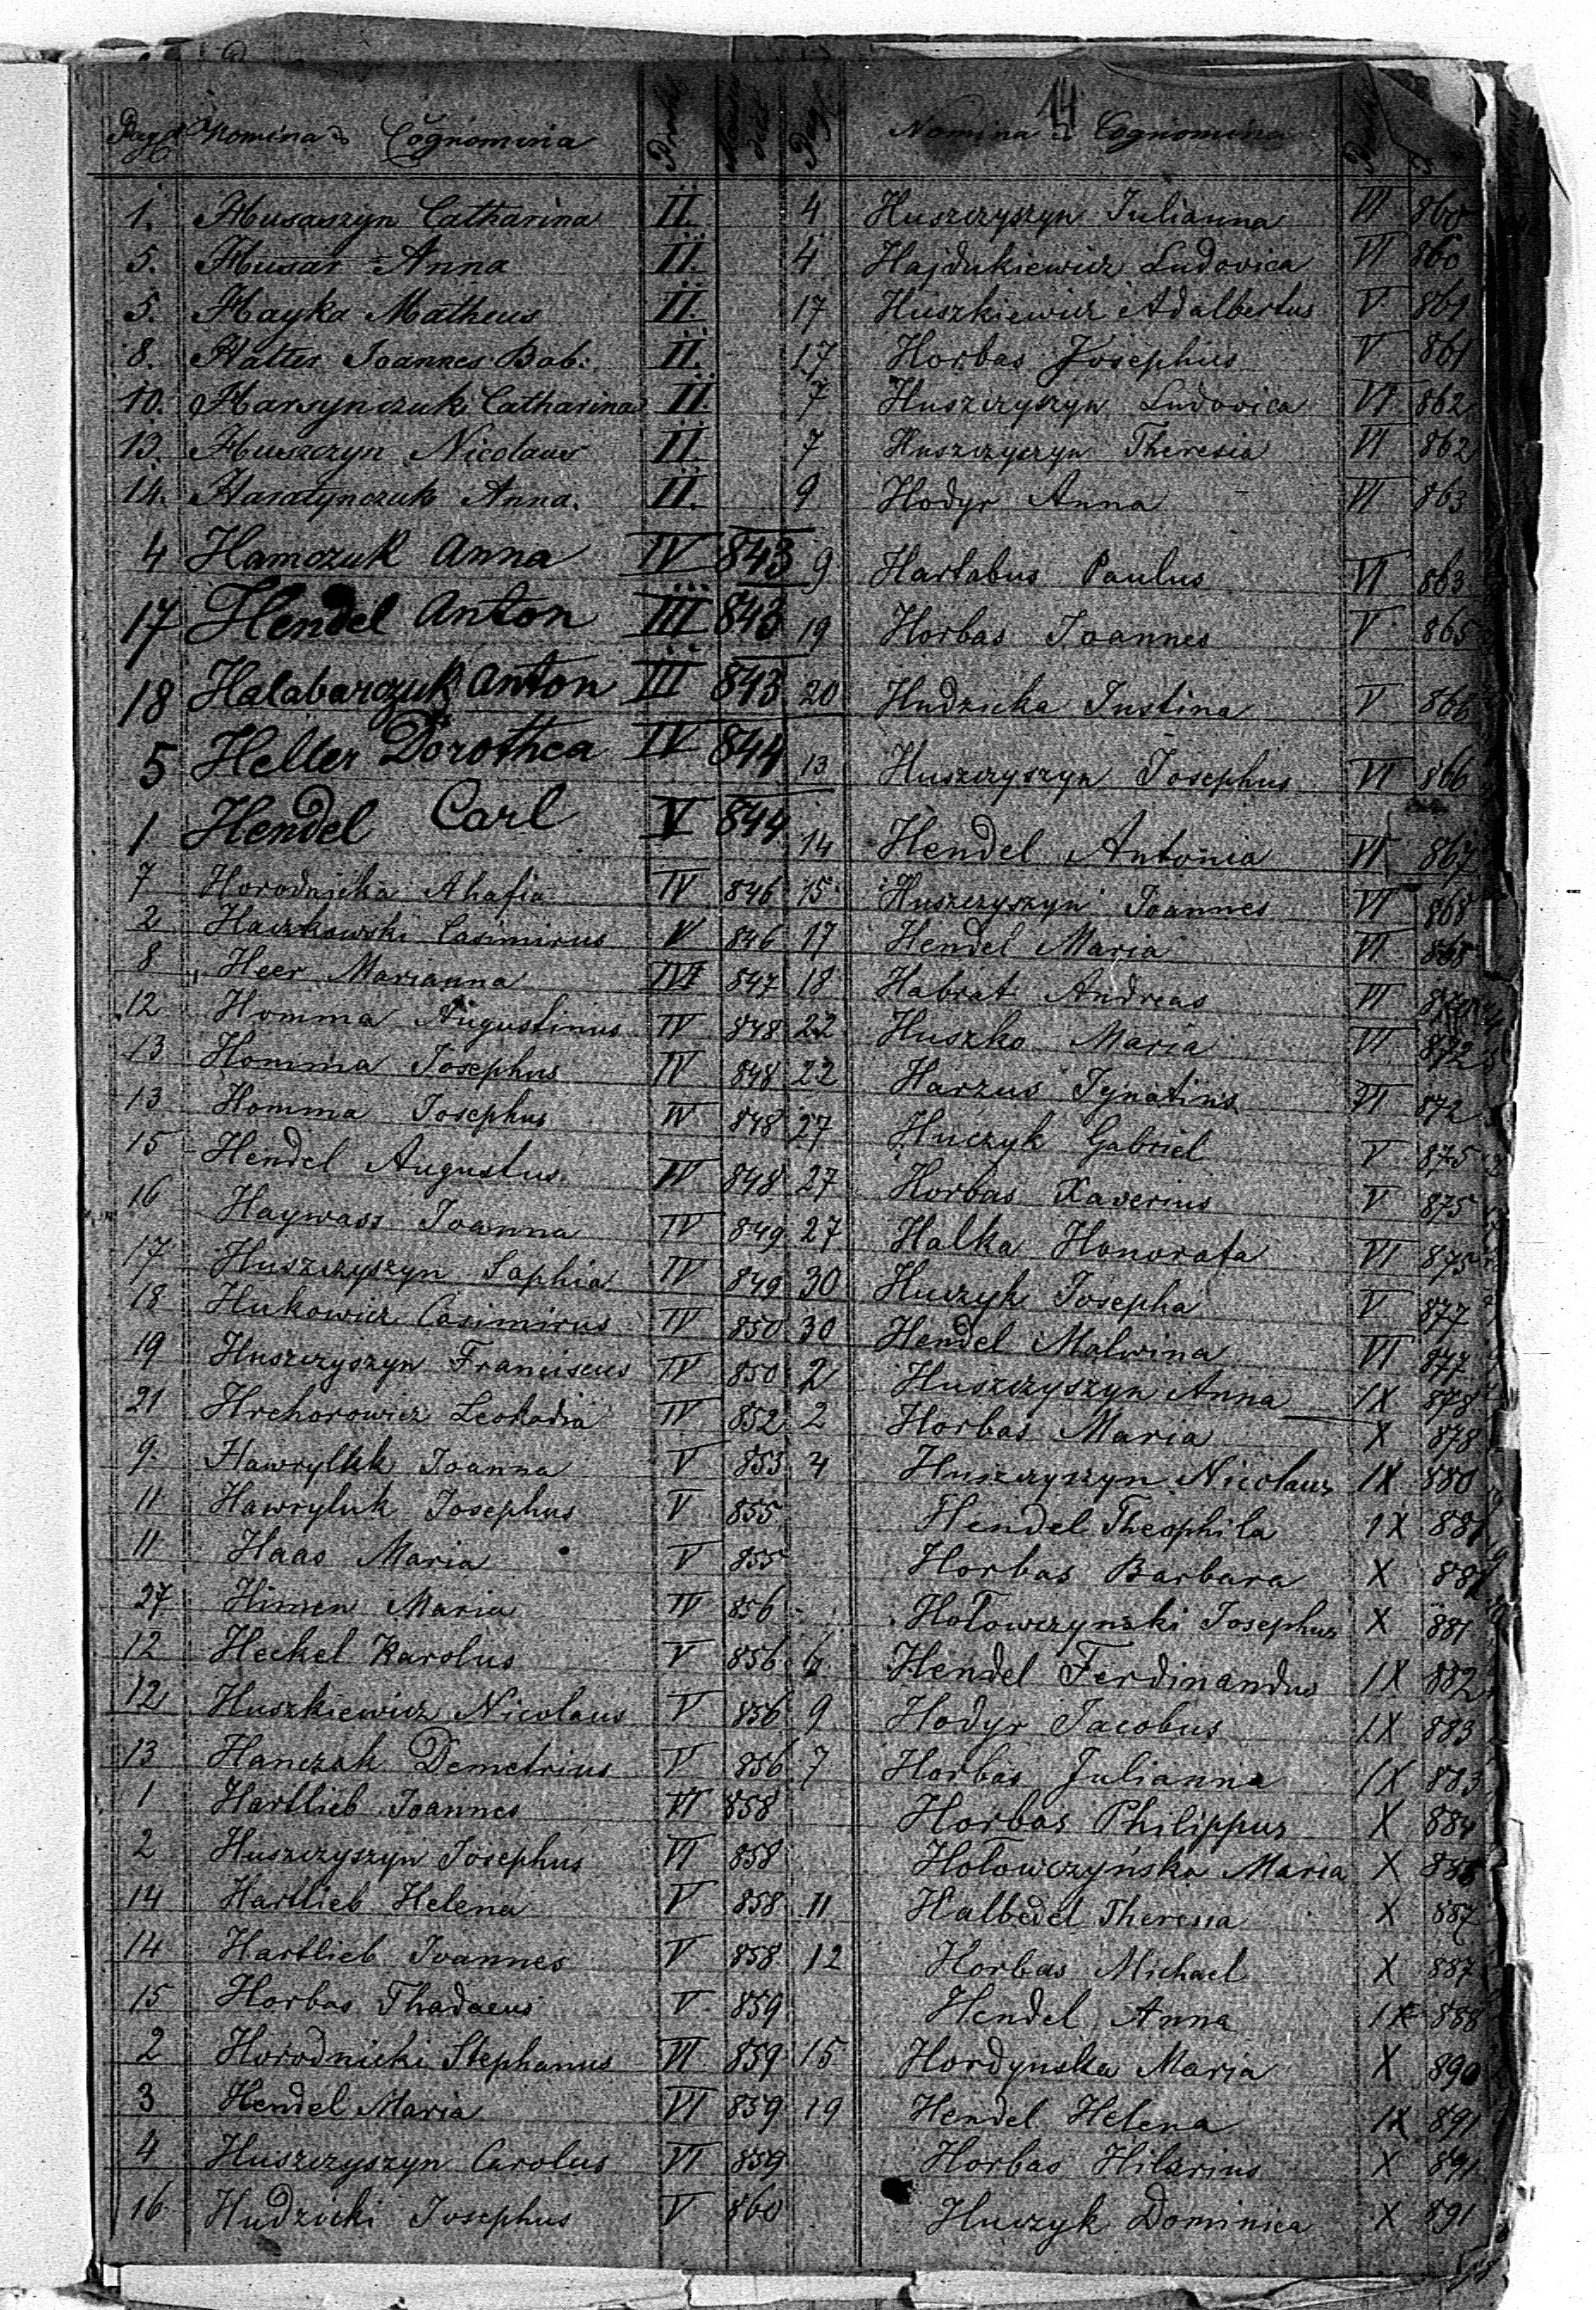 14
Pag. Nomina & Cognomina Pag. Nomina & Cognomina
1. Husaszyn Catharina II.
5. Husar Anna II.
5. Hayka Matheus II.
8. Halter Joannes Bab: II.
10. Harsynczuk Catharina II.
13. Huszczyn Nicolaus II.
14. Haratynczuk Anna. II.
4 Hamczuk Anna IV 843
17 Hendel Anton III 843
18 Halabarczuk Anton III 843
5 Heller Dorothea IV 844
1 Hendel Carl V 844
7 Horodnicka Ahafia IV 846
2 Haczkowski Casimirus V 846
8 Heer Marianna IV 847
12 Homma Augustinus IV 848
13 Homma Josephus IV 848
13 Homma Josephus IV 848
15 Hendel Augustus IV 848
16 Haywass Joanna IV 849
17 Huszczyszyn Sophia IV 849
18 Hukowicz Casimirus IV 850
19 Huszczyszyn Franciscus IV 850
21 Hrehorowicz Leokadia IV 852
9. Hawryluk Joanna V 853
11 Hawryluk Josephus V 855
11 Haas Maria V 855
27 Himen Maria IV 856
12 Heckel Karolus V 856
12 Huszkiewicz Nicolaus V 856
13 Hanczak Demetrius V 856
1 Hartlieb Joannes VI 858
2 Huszczyszyn Josephus VI 858
14 Hartlieb Helena V 858
14 Hartlieb Joannes V 858
15 Horbas Thadaeus V 859
2 Horodnicki Stephanus VI 859
3 Hendel Maria VI 859
4 Huszczyszyn Carolus VI 859
16 Hudzicki Josephus V 860
4 Huszczyszyn Julianna VI 860
4 Hajdukiewicz Ludovica VI 860
17 Huszkiewicz Adalbertus V 861
17 Horbas Josephus V 861
7 Huszczyszyn Ludovica VI 862
7 Huszczyszyn Theresia VI 862
9 Hodyr Anna VI 863
9 Hartabus Paulus VI 863
19 Horbas Joannes V 865
20 Hudzicka Justina V 866
13 Huszczyszyn Josephus VI 866
14 Hendel Antonia VI 867
15 Huszczyszyn Joannes VI 868
17 Hendel Maria VI 868
18 Habrat Andreas VI
22 Huszko Maria VI 872
22 Harzus Ignatius VI 872
27 Huczyk Gabriel V 875
27 Horbas Xaverius V 875
27 Halka Honorata VI 875
30 Huczyk Josepha V 877
30 Hendel Malwina VI 877
2 Huszczyszyn Anna IX 878
2 Horbas Maria X 878
4 Huszczyszyn Nicolaus IX 880
Hendel Theophila IX 881
Horbas Barbara X 881
Hołowczynski Josephus X 881
6 Hendel Ferdinandus IX 882
9 Hodyr Jacobus IX 883
7 Horbas Julianna IX 883
Horbas Philippus X 884
Hołowczyńska Maria X
11 Halbedel Theresia X 887
12 Horbas Michael X 887
Hendel Anna IX 888
15 Hordynska Maria X 890
19 Hendel Helena IX 891
Horbas Hilarius X 891
Huczyk Dominica X 891